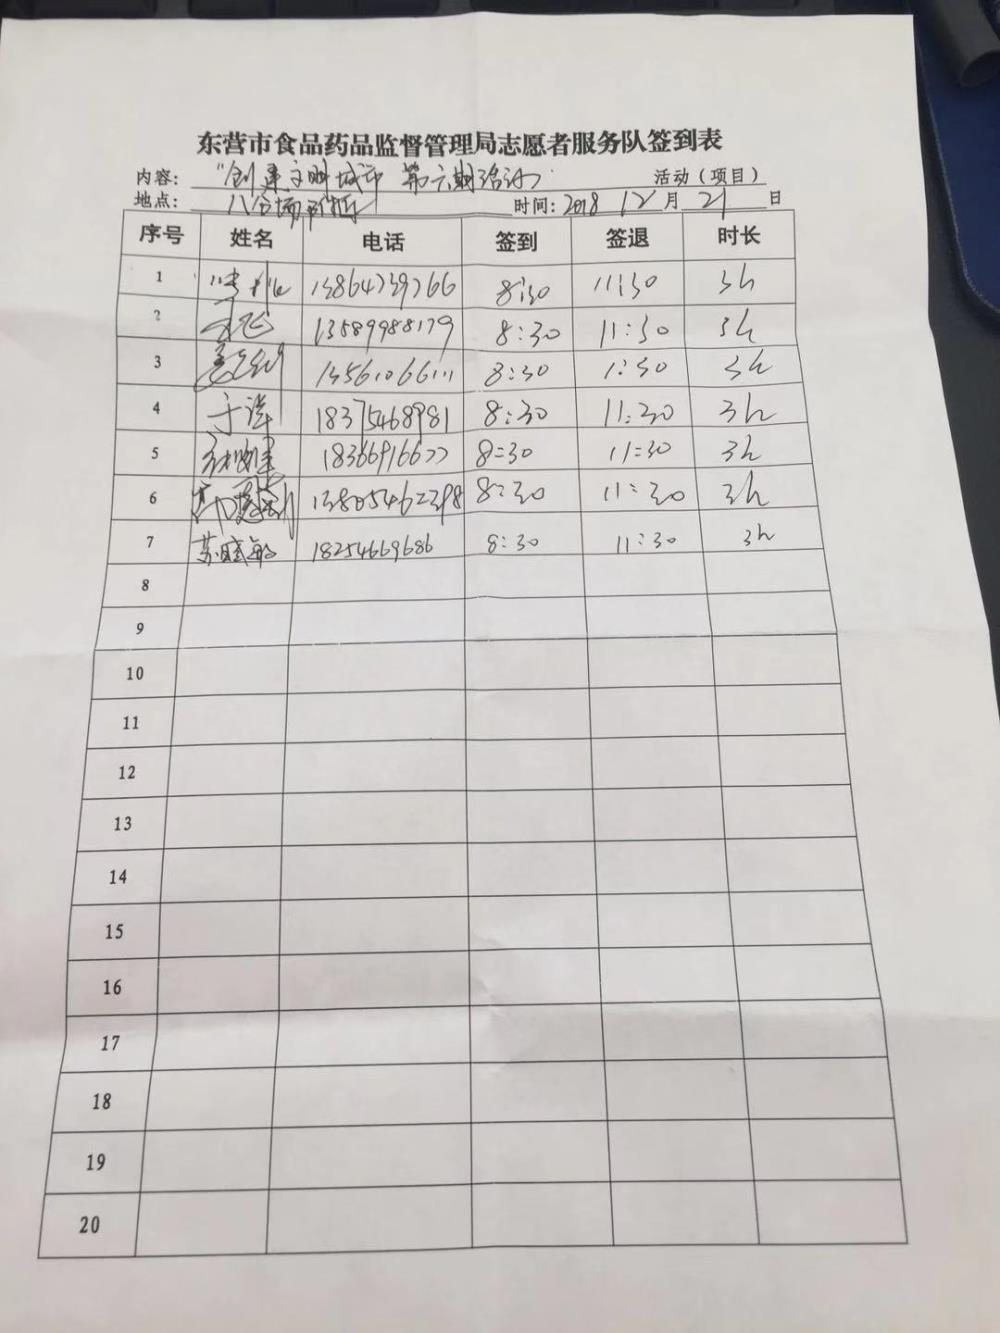 东营市食品药品监督管理局志愿者服务队签到表
内容: "创建文明城市 第六期 活动(项目)
地点: 时间: 2018 12月 21日
序号 姓名 电话 签到 签退 时长
1 13864739766 8:30 11:30 3h
2 飞 13589988179 8:30 11:30 3h
3 13561066111 8:30 1:30 3h
4 于洋 18375468981 8:30 11:30 3h
5 18366916677 8:30 11:30 3h
6 13805462398 8:30 11:30 3h
7 苏 敏 18254669686 8:30 11:30 3h
8
9
10
11
12
13
14
15
16
17
18
19
20